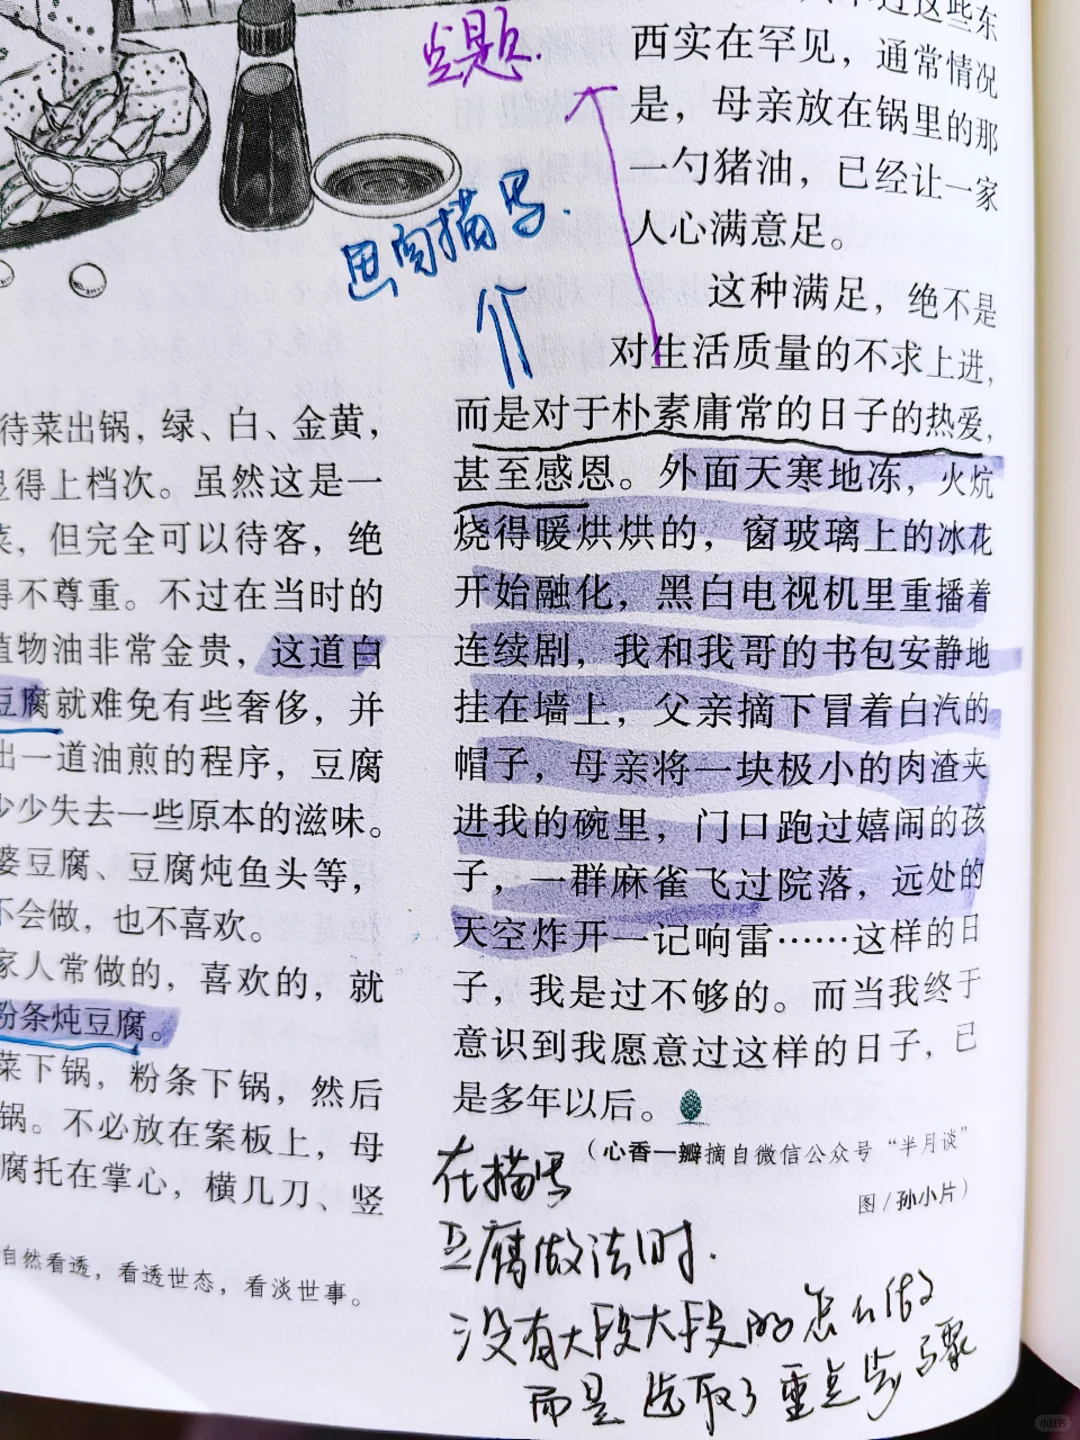 点题.
思肉描写.
待菜出锅，绿、白、金黄，
显得上档次。虽然这是一
菜，但完全可以待客，绝
得不尊重。不过在当时的
植物油非常金贵，这道白
豆腐就难免有些奢侈，并
出一道油煎的程序，豆腐
少少失去一些原本的滋味。
婆豆腐、豆腐炖鱼头等，
不会做，也不喜欢。
家人常做的，喜欢的，就
粉条炖豆腐。
菜下锅，粉条下锅，然后
锅。不必放在案板上，母
腐托在掌心，横几刀、竖
自然看透，看透世态，看淡世事。
过这些东
西实在罕见，通常情况
是，母亲放在锅里的那
一勺猪油，已经让一家
人心满意足。
这种满足，绝不是
对生活质量的不求上进，
而是对于朴素庸常的日子的热爱，
甚至感恩。外面天寒地冻，火炕
烧得暖烘烘的，窗玻璃上的冰花
开始融化，黑白电视机里重播着
连续剧，我和我哥的书包安静地
挂在墙上，父亲摘下冒着白汽的
帽子，母亲将一块极小的肉渣夹
进我的碗里，门口跑过嬉闹的孩
子，一群麻雀飞过院落，远处的
天空炸开一记响雷……这样的日
子，我是过不够的。而当我终于
意识到我愿意过这样的日子，已
是多年以后。
（心香一瓣摘自微信公众号“半月谈”
图/孙小片）
在描写
豆腐做法时.
没有大段大段的怎么做
而是选取了重点步骤
小红书